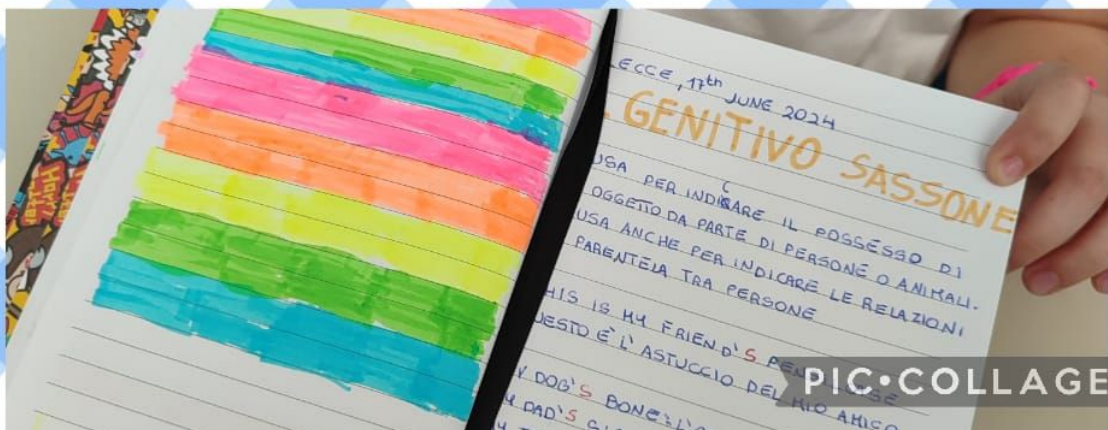 ECCE, 17th JUNE 2024
GENITIVO SASSONE
USA PER INDICARE IL POSSESSO DI
OGGETTO DA PARTE DI PERSONE O ANIMALI.
USA ANCHE PER INDICARE LE RELAZIONI
PARENTELA TRA PERSONE
HIS IS MY FRIEND'S
UESTO È L'ASTUCCIO DEL MIO AMICO
DOG'S BONE: L'
DAD'S
PIC•COLLAGE